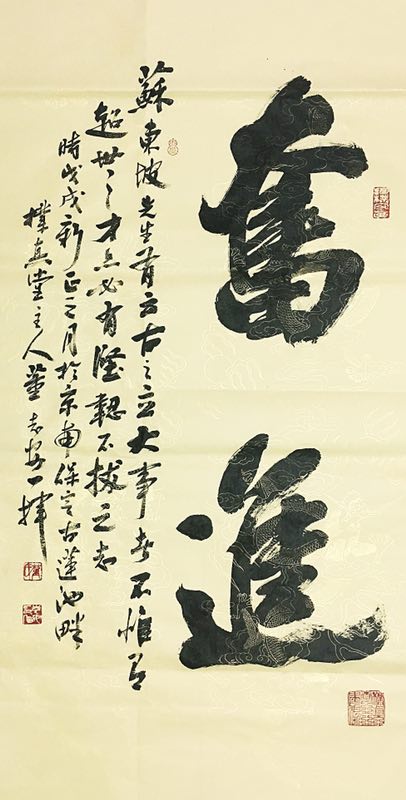 奮進
蘇東坡先生有云古之立大事者不惟有
超世之才亦必有堅韌不拔之志
時戊戌新正之月於京南保定古蓮池畔
樸真堂主人董志一揮